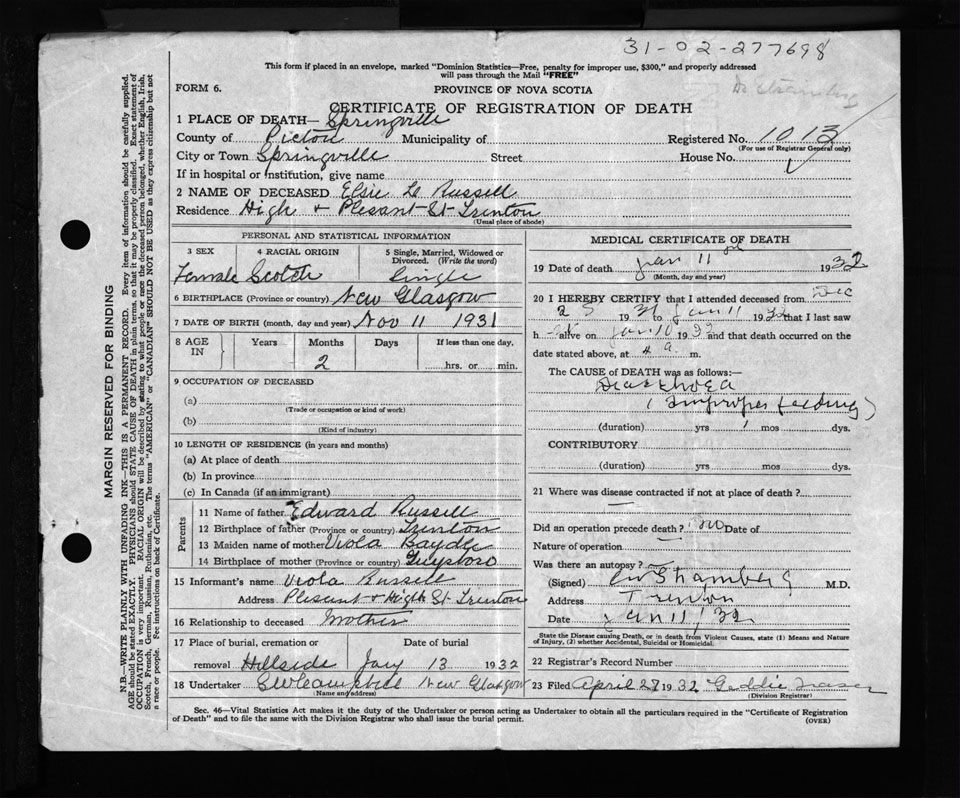 31-02-277698
This form if placed in an envelope, marked "Dominion Statistics—Free, penalty for improper use, $300," and properly addressed
will pass through the Mail "FREE"
FORM 6.
PROVINCE OF NOVA SCOTIA
CERTIFICATE OF REGISTRATION OF DEATH
1 PLACE OF DEATH— Springville
County of Pictou Municipality of Registered No. 1013
(For use of Registrar General only)
City or Town Springville Street House No.
If in hospital or institution, give name
2 NAME OF DECEASED Elsie Russell
Residence High & Plesant St Trenton
(Usual place of abode)
PERSONAL AND STATISTICAL INFORMATION
3 SEX 4 RACIAL ORIGIN 5 Single, Married, Widowed or Divorced. (Write the word)
Female Scotch Single
6 BIRTHPLACE (Province or country) New Glasgow
7 DATE OF BIRTH (month, day and year) Nov 11 1931
8 AGE IN Years Months Days If less than one day,
2 hrs. or min.
9 OCCUPATION OF DECEASED
(a)
(Trade or occupation or kind of work)
(b)
(Kind of industry)
10 LENGTH OF RESIDENCE (in years and months)
(a) At place of death
(b) In province
(c) In Canada (if an immigrant)
Parents
11 Name of father Edward Russell
12 Birthplace of father (Province or country) Trenton
13 Maiden name of mother Viola
14 Birthplace of mother (Province or country) Guysboro
15 Informant's name Viola Russell
Address Plesant & High St Trenton
16 Relationship to deceased Mother
17 Place of burial, cremation or Date of burial
removal Hillside Jany 13 1932
18 Undertaker Campbell New Glasgow
(Name and address)
MEDICAL CERTIFICATE OF DEATH
19 Date of death Jan 11 1932
(Month, day and year)
20 I HEREBY CERTIFY that I attended deceased from Dec
25 1931 to Jan 11 1932 that I last saw
h alive on Jan 10 1932 and that death occurred on the
date stated above, at 4 a. m.
The CAUSE OF DEATH was as follows:—
Diarrhoea
(improper feeding)
(duration) yrs 1 mos dys.
CONTRIBUTORY
(duration) yrs mos dys.
21 Where was disease contracted if not at place of death?
Did an operation precede death? no Date of
Nature of operation
Was there an autopsy?
(Signed) M.D.
Address Trenton
Date Jan 11, '32
State the Disease causing Death, or in death from Violent Causes, state (1) Means and Nature
of Injury, (2) whether Accidental, Suicidal or Homicidal.
22 Registrar's Record Number
23 Filed April 27 1932
(Division Registrar)
Sec. 46—Vital Statistics Act makes it the duty of the Undertaker or person acting as Undertaker to obtain all the particulars required in the "Certificate of Registration
of Death" and to file the same with the Division Registrar who shall issue the burial permit.
(OVER)
MARGIN RESERVED FOR BINDING
N.B.—WRITE PLAINLY WITH UNFADING INK—THIS IS A PERMANENT RECORD. Every item of information should be carefully supplied.
AGE should be stated EXACTLY. PHYSICIANS should STATE CAUSE OF DEATH in plain terms, so that it may be properly classified. Exact statement of
OCCUPATION is very important. RACIAL ORIGIN will be described by stating to what people or race the deceased person belonged, whether English, Irish,
Scotch, French, German, Russian, Ruthenian, etc. The terms "AMERICAN" or "CANADIAN" SHOULD NOT BE USED as they express citizenship but not
a race or people. See instructions on back of Certificate.